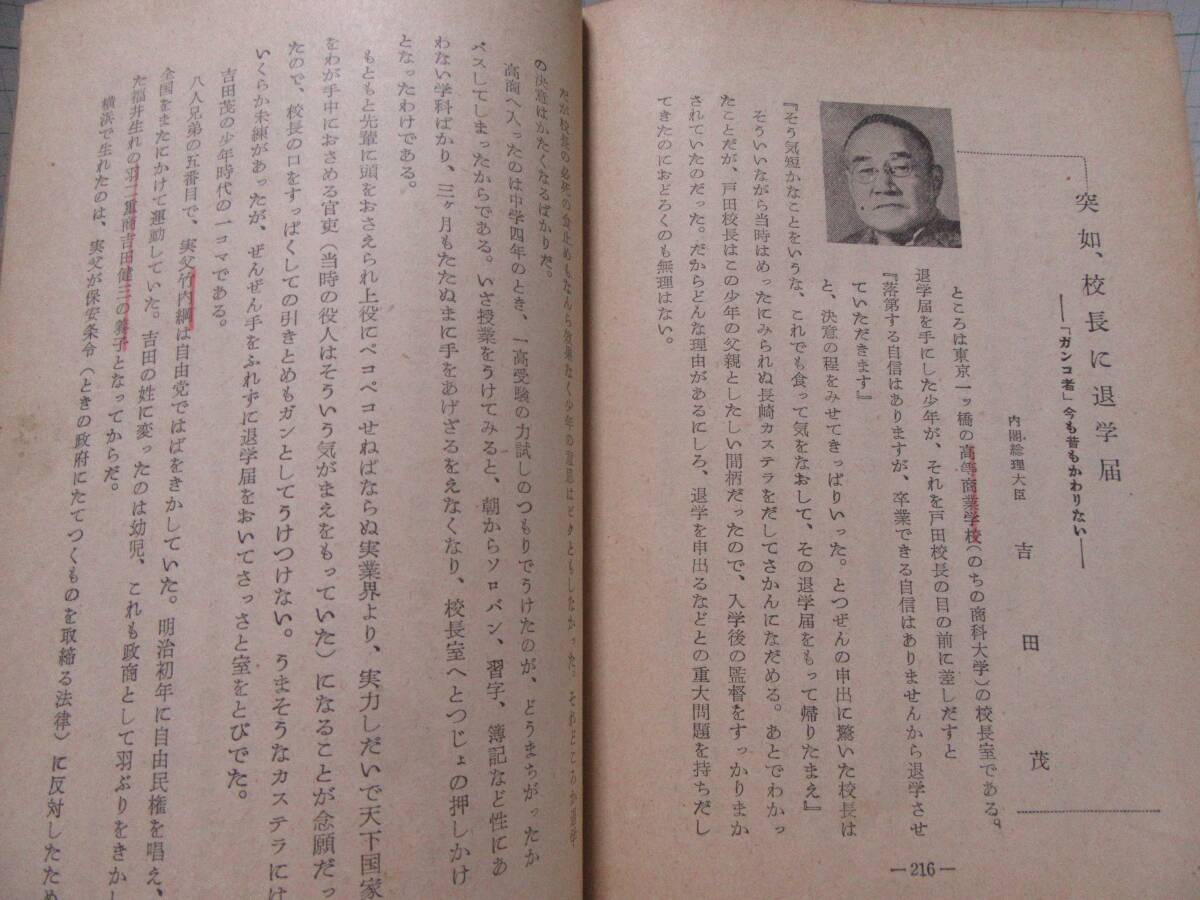 突如、校長に退学届
――「ガンコ者」今も昔もかわりない――
内閣総理大臣　吉田茂
ところは東京一ッ橋の高等商業学校(のちの商科大学)の校長室である。
退学届を手にした少年が、それを戸田校長の目の前に差しだすと
『落第する自信はありますが、卒業できる自信はありませんから退学させ
ていただきます』
と、決意の程をみせてきっぱりいった。とつぜんの申出に驚いた校長は
『そう気短かなことをいうな、これでも食って気をなおして、その退学届をもって帰りたまえ』
そういいながら当時はめったにみられぬ長崎カステラをだしてさかんになだめる。あとでわかっ
たことだが、戸田校長はこの少年の父親としたしい間柄だったので、入学後の監督をすっかりまか
されていたのだった。だからどんな理由があるにしろ、退学を申出るなどとの重大問題を持ちだし
てきたのにおどろくのも無理はない。
―216―
だが校長の必死の食止めもなんら効果なく少年の意思はビクともしなかった。それどころか退学
の決意はかたくなるばかりだ。
高商へ入ったのは中学四年のとき、一高受験の力試しのつもりでうけたのが、どうまちがったか
パスしてしまったからである。いざ授業をうけてみると、朝からソロバン、習字、簿記など性にあ
わない学科ばかり、三ヶ月もたたぬまに手をあげざるをえなくなり、校長室へとつじょの押しかけ
となったわけである。
もともと先輩に頭をおさえられ上役にペコペコせねばならぬ実業界より、実力しだいで天下国家
をわが手中におさめる官吏(当時の役人はそういう気がまえをもっていた)になることが念願だっ
たので、校長の口をすっぱくしての引きとめもガンとしてうけつけない。うまそうなカステラには
いくらか未練があったが、ぜんぜん手をふれずに退学届をおいてさっさと室をとびでた。
吉田茂の少年時代の一コマである。
八人兄弟の五番目で、実父竹内綱は自由党ではばをきかしていた。明治初年に自由民権を唱え、
全国をまたにかけて運動していた。吉田の姓に変ったのは幼児、これも政商として羽ぶりをきかし
た福井生れの羽二重商吉田健三の養子となってからだ。
横浜で生れたのは、実父が保安条令(ときの政府にたてつくものを取締る法律)に反対したため